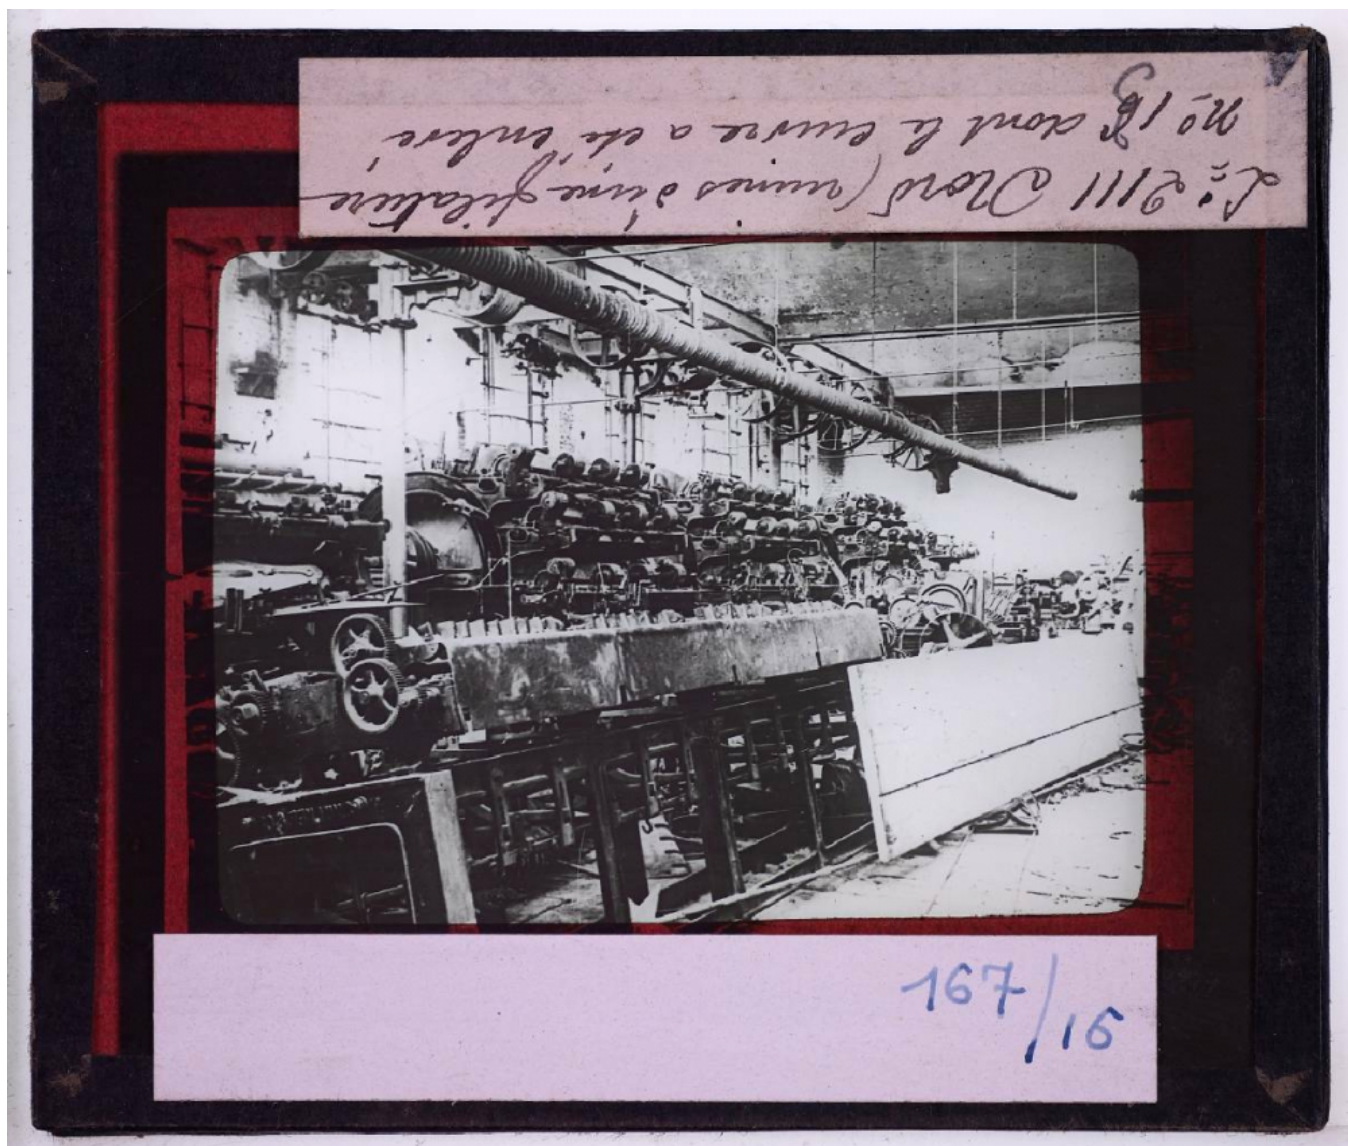 Lⁿ: 2111 Nord (ruines d'une filature
nº 16 dont le cuivre a été enlevé
167/16